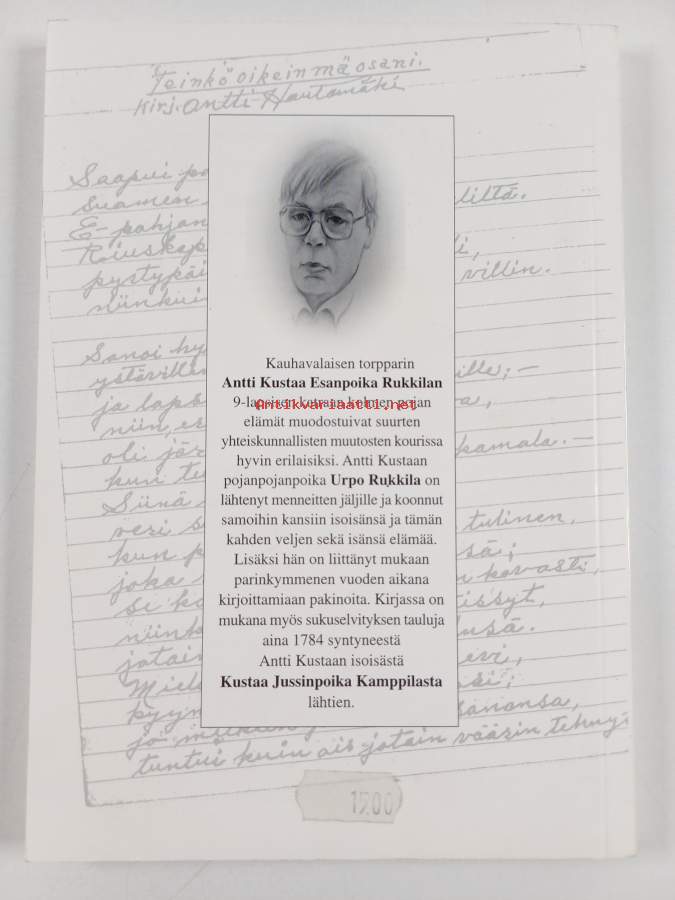 Teinkö oikein mä osani.
Kirj. Antti Hautamäki
Saapui
Suomen
liltä.
E-pohjan
pystypäi
villin.
niinkui
Sanoi hy
ystäville
ille; –
ja laps
niin, es
oli jär
kamala. –
kun tu
Siinä
tulinen,
veri s
sä;
kun p
n kovasti,
joka
tissyt,
se ko
usä.
niink
jotain
evi,
Miel
si;
kyyn
sanansa,
tuntui kuin ois jotain väärin tehny
Kauhavalaisen torpparin
Antti Kustaa Esanpoika Rukkilan
9-lapsisen katraan kolmen pojan
Antikvariaatti.net
elämät muodostuivat suurten
yhteiskunnallisten muutosten kourissa
hyvin erilaisiksi. Antti Kustaan
pojanpojanpoika Urpo Rukkila on
lähtenyt menneitten jäljille ja koonnut
samoihin kansiin isoisänsä ja tämän
kahden veljen sekä isänsä elämää.
Lisäksi hän on liittänyt mukaan
parinkymmenen vuoden aikana
kirjoittamiaan pakinoita. Kirjassa on
mukana myös sukuselvityksen tauluja
aina 1784 syntyneestä
Antti Kustaan isoisästä
Kustaa Jussinpoika Kamppilasta
lähtien.
15.00